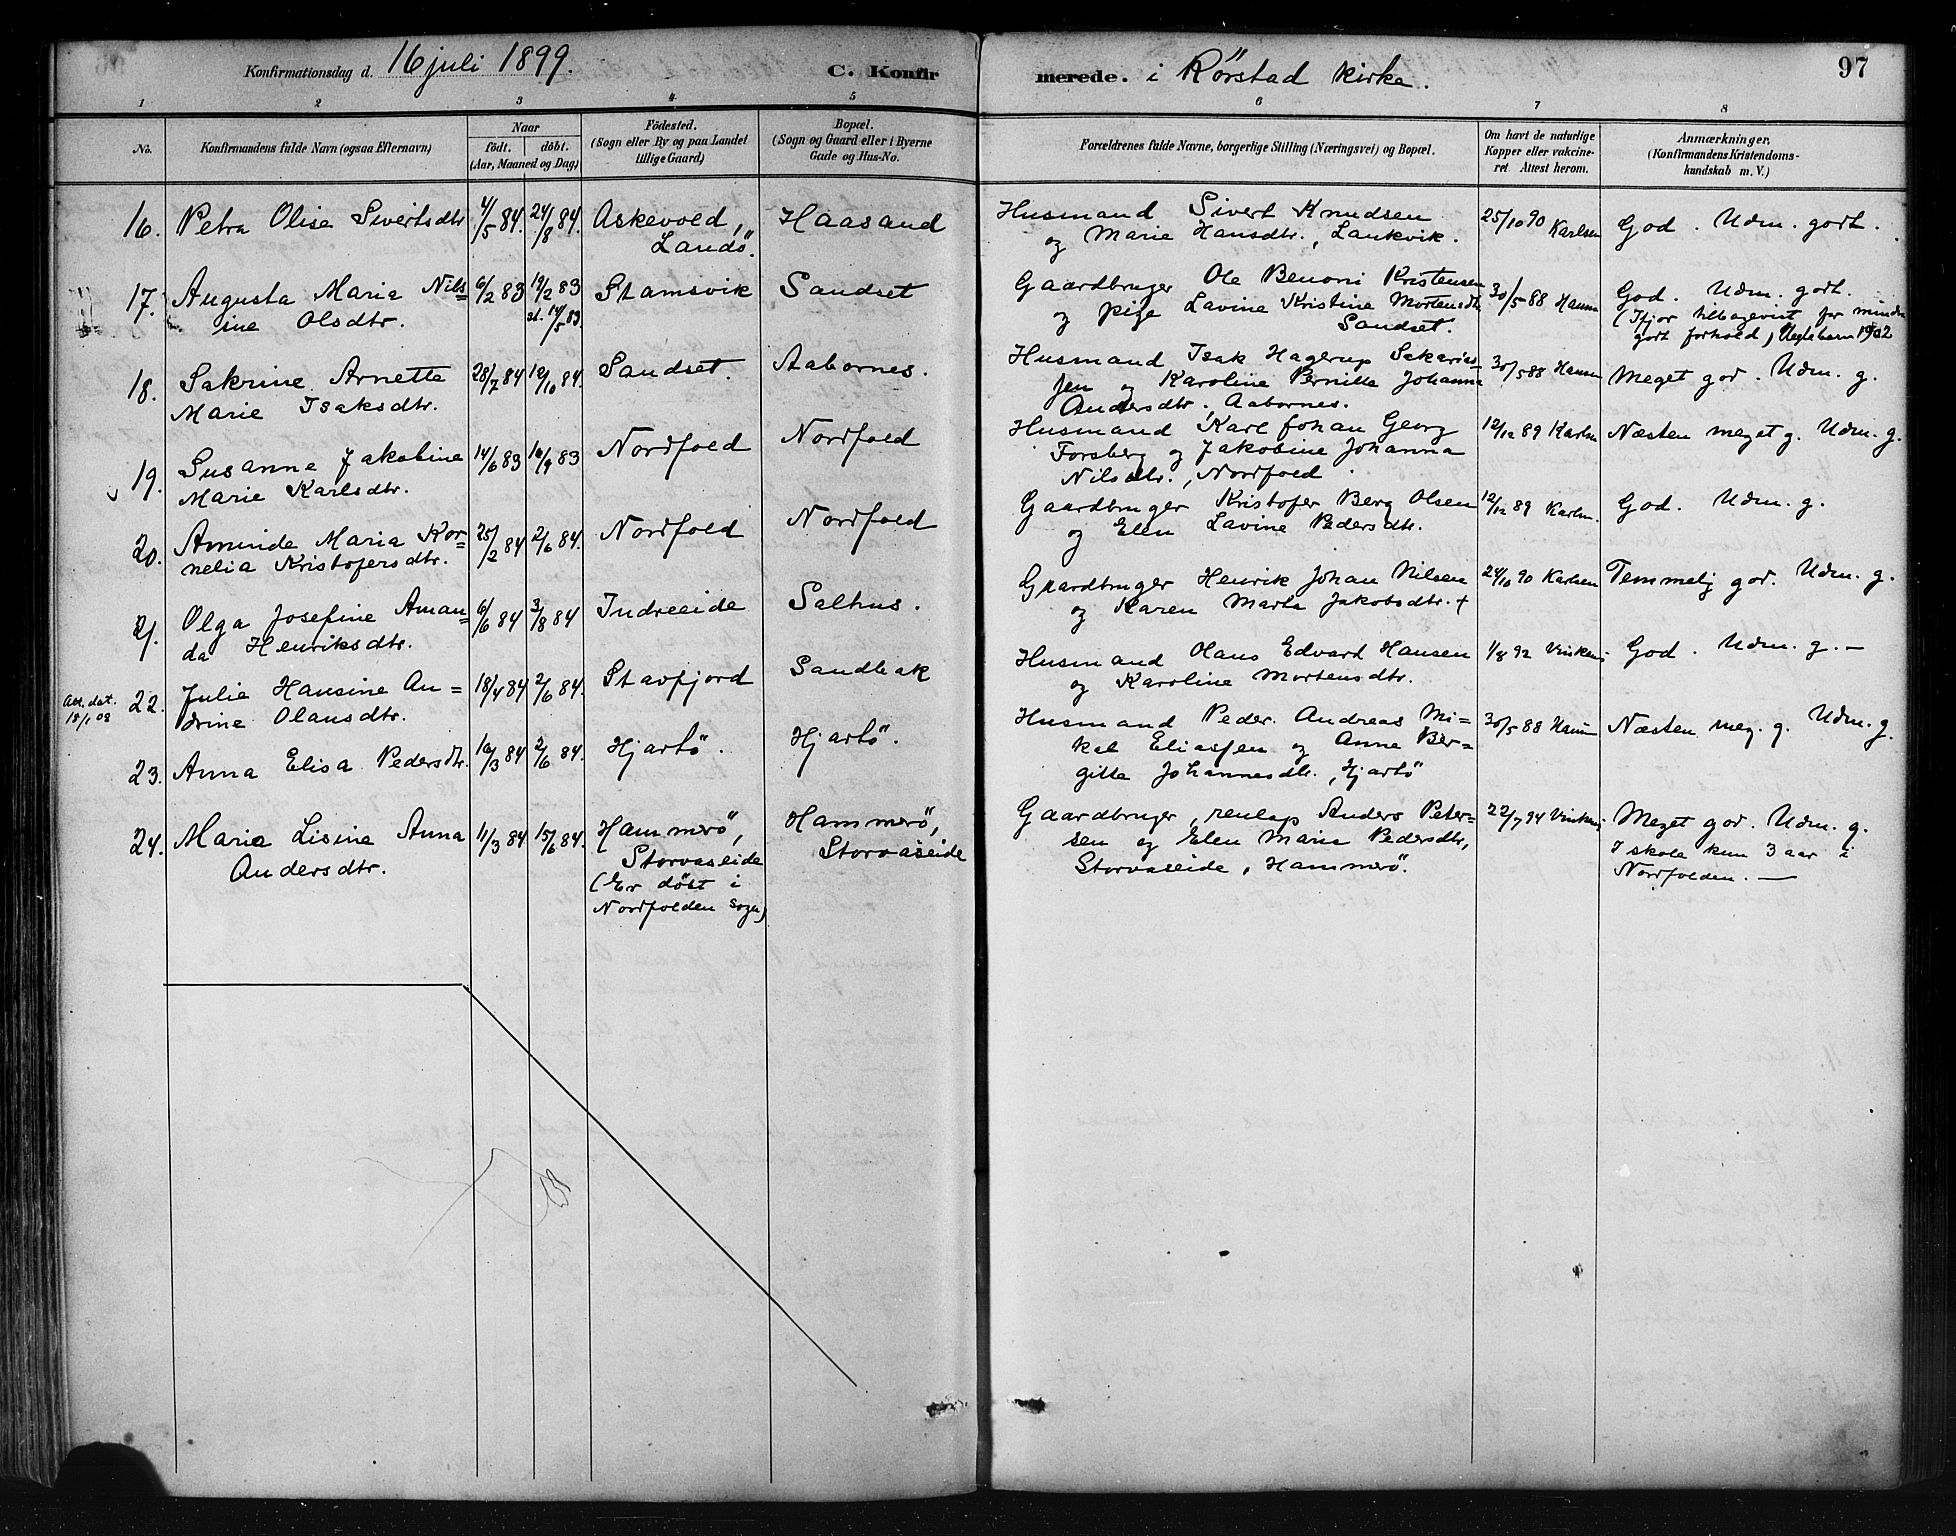 Konfirmationsdag d. 16 juli 1899. C. Konfirmerede. i Rörstad kirke. 97
1 2 3 4 5 6 7 8
No.
Konfirmandens fulde Navn (ogsaa Efternavn)
Naar
født. døbt.
(Aar, Maaned og Dag)
Fødested.
(Sogn eller By og paa Landet
tillige Gaard)
Bopæl.
(Sogn og Gaard eller i Byerne
Gade og Hus-No.
Forældrenes fulde Navne, borgerlige Stilling (Næringsvei) og Bopæl.
Om havt de naturlige
Kopper eller vakcine-
ret. Attest herom.
Anmærkninger.
(Konfirmandens Kristendoms-
kundskab m. V.)
16. Petra Olise Sivertsdtr 4/5 84. 24/8 84. Askevold, Landö. Haasand
Husmand Sivert Knudsen
og Marie Hansdtr., Laukvik.
25/10 90 Karlsen God. Udm. godt.
17. Augusta Maria Nils=
ine Olsdtr.
6/2 83 19/2 83
st. 14/5 83.
Stamsvik Sandset
Gaardbruger Ole Benoni Kristensen
og pige Lavine Kristine Mortensdtr
Sandset.
30/5 88 Hamm
God. Udm. godt.
(Ifjor tilbagevist for mindre
godt forhold,
18. Sakrine Arnette
Marie Isaksdtr.
28/7 84 12/10 84. Sandset. Aabornes.
Husmand Isak Hagerup Sakarias=
sen og Karoline Pernille Johanna
Andersdtr., Aabornes.
30/5 88 Hamm Meget god. Udm. g.
19. Susanne Jakobine
Marie Karlsdtr.
14/6 83 16/9 83 Nordfold Nordfold
Husmand Karl Johan Georg
Forsberg og Jakobine Johanna
Nilsdtr., Nordfold
12/12 89 Karlsen Næsten meget g. Udm. g.
20. Aminde Maria Kor=
nelia Kristofersdtr.
25/2 84 2/6 84. Nordfold Nordfold
Gaardbruger Kristofer Berg Olsen
og Elen Lavine Pedersdtr.
12/12 89 Karlsn. God. Udm. g.
21. Olga Josefine Aman=
da Henriksdtr.
6/6 84 3/8 84 Indreeide Salhus.
Gaardbruger Henrik Johan Nilsen
og Karen Marta Jakobsdtr. +
24/10 90 Karlsen Temmelig god. Udm. g.
Att. dat.
18/1 08
22. Julie Hansine An=
drine Olausdtr.
18/4 84 2/6 84. Stavfjord Sandbak
Husmand Hans Edvard Hansen
og Karoline Mortensdtr.
1/8 92 God. Udm. g. —
23. Anna Elisa Pedersdtr. 16/3 84 2/6 84. Hjartö. Hjartö.
Husmand Peder Andreas Mi=
kal Eliassen og Anne Ber=
gitte Johannesdtr., Hjartö
30/5 88 Hamm Næsten meg. g. Udm. g.
24. Maria Lisine Anna
Andersdtr.
11/3 84 15/6 84. Hammerö,
Storvaseide
(Er döbt i
Nordfolden sogn)
Hammerö,
Storvaseide
Gaardbruger, renlap Anders Peter=
sen og Elen Maria Pedersdtr,
Storvaseide, Hammerö.
22/7 94
Meget god. Udm. g.
I skole kun 3 aar i
Nordfolden. —